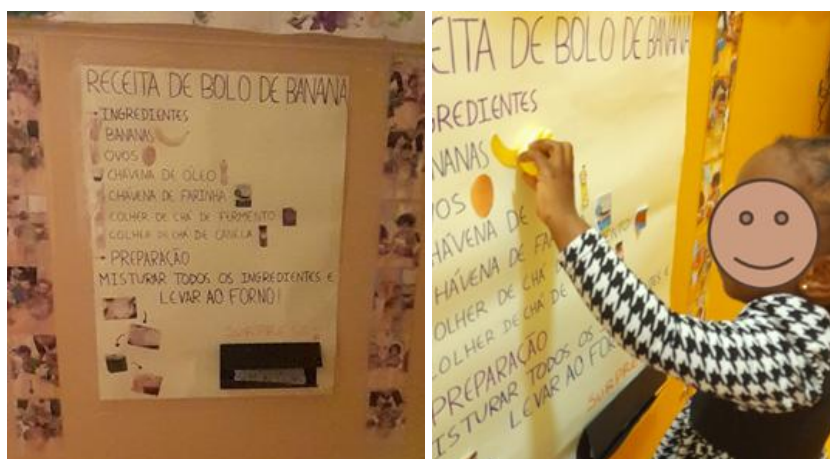 RECEITA DE BOLO DE BANANA
- INGREDIENTES
BANANAS
OVOS
CHÁVENA DE ÓLEO
CHÁVENA DE FARINHA
COLHER DE CHÁ DE FERMENTO
COLHER DE CHÁ DE CANELA
- PREPARAÇÃO
MISTURAR TODOS OS INGREDIENTES E
LEVAR AO FORNO!
SURPRESA
EITA DE BOLO DE BANANA
GREDIENTES
NANAS
OS
HÁVENA DE
HÁVENA DE FAR
OLHER DE CHÁ
OLHER DE CHÁ DE
PREPARAÇÃO
ISTURAR TODOS OS
LEVAR AO FOR
SURPRE